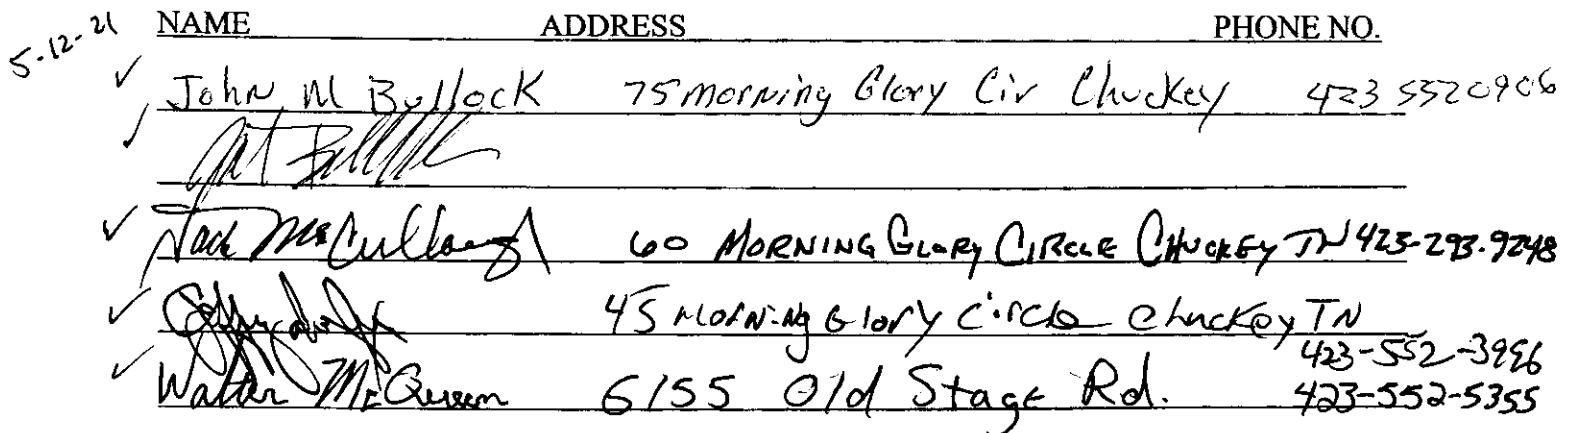 5-12-21
NAME ADDRESS PHONE NO.
John M Bullock 75 morning Glory Cir Chuckey 423 5520906
Jack McCullough 60 MORNING GLORY CIRCLE CHUCKEY TN 423-293-9248
45 Morning Glory Circle Chuckey TN
423-552-3996
Walter McQueen 6155 Old Stage Rd. 423-552-5355